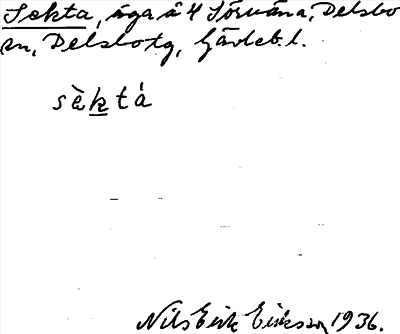 Sekta, äga å 4 Sörvåna, Delsbo
sn, Delsbotg, Gävleb. l.
sè̀ktá
Nils Erik Eriksson 1936.